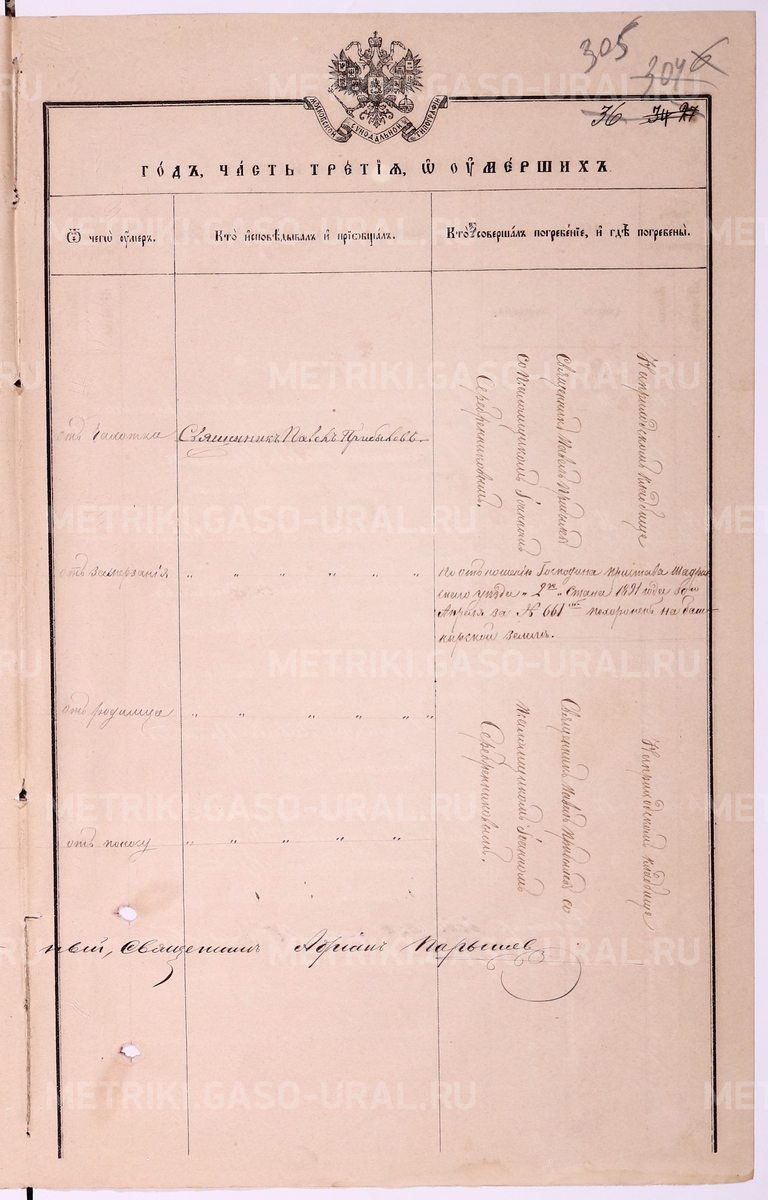 305
304 6
36 34 27
МОСКОВСКОЙ СѴНОДАЛЬНОЙ ТИПОГРАФІИ
ГОДЪ, ЧАСТЬ ТРЕТІЯ, Ѡ ОУМЕРШИХЪ
Ѿ чегѡ оумеръ.
Кто исповѣдывалъ и пріобщалъ.
Кто совершалъ погребеніе, и гдѣ погребены.
отъ чахотки
Священникъ Павелъ Прибылевъ
Священникъ Павелъ Прибылевъ
со псаломщикомъ Іоанномъ
Серебренниковымъ.
На приходскомъ кладбище
отъ замерзанія
„ „ „ „ „ „
По отношенію Господина пристава Шадрин-
скаго уѣзда „2го„ стана 1891 года
Апрѣля за № 661 похороненъ на баш-
кирской землѣ.
отъ родимца
„ „ „ „ „ „
Священникъ Павелъ Прибылевъ со
псаломщикомъ Іоанномъ
Серебренниковымъ.
На приходскомъ кладбище
отъ поносу
„ „ „ „ „
ный, Священникъ Адріанъ Парышев
METRIKI.GASO-URAL.RU